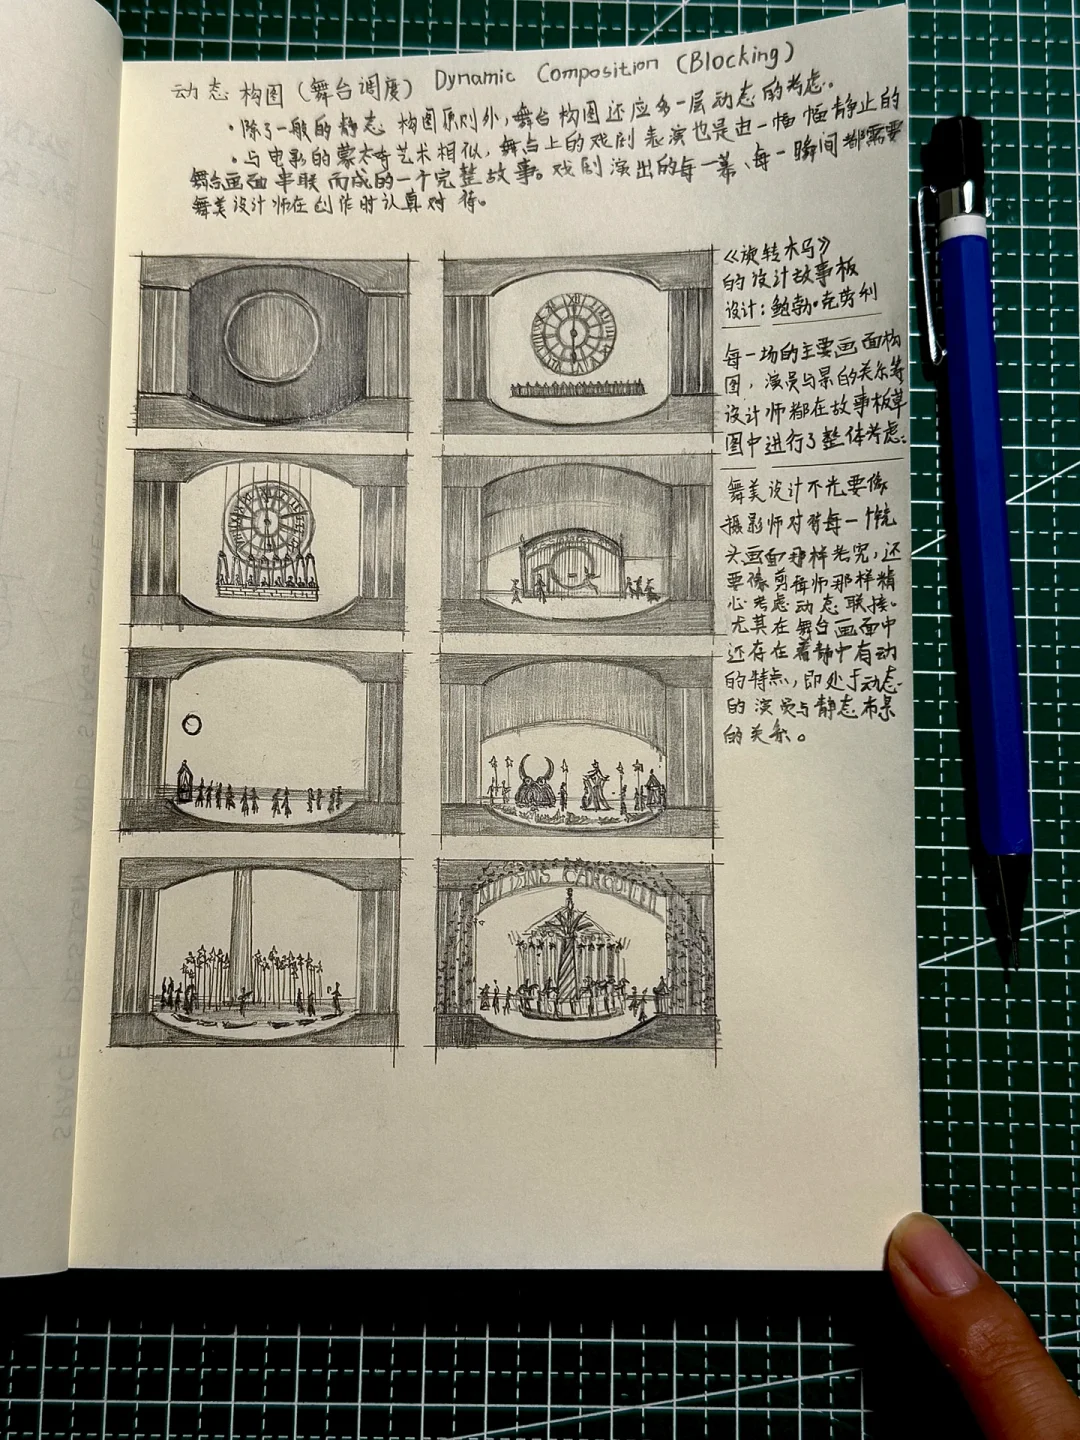 动态构图（舞台调度） Dynamic Composition (Blocking)
·除了一般的静态构图原则外，舞台构图还应多一层动态的考虑。
·与电影的蒙太奇艺术相似，舞台上的戏剧表演也是由一幅幅静止的
舞台画面串联而成的一个完整故事。戏剧演出的每一幕、每一瞬间都需要
舞美设计师在创作时认真对待。
《旋转木马》
的设计故事板
设计：鲍勃·克劳利
每一场的主要画面构
图，演员与景的关系等
设计师都在故事板草
图中进行了整体考虑。
舞美设计不光要像
摄影师对待每一个镜
头画面那样考究，还
要像剪辑师那样精
心考虑动态联接。
尤其在舞台画面中
还存在着静中有动
的特点，即处于动态
的演员与静态布景
的关系。
SPACE DESIGN AND STAGE